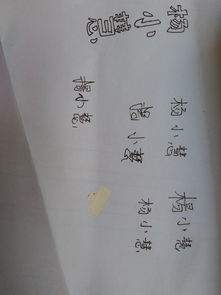 杨小慧
杨小慧
杨小慧
杨小慧
杨小慧